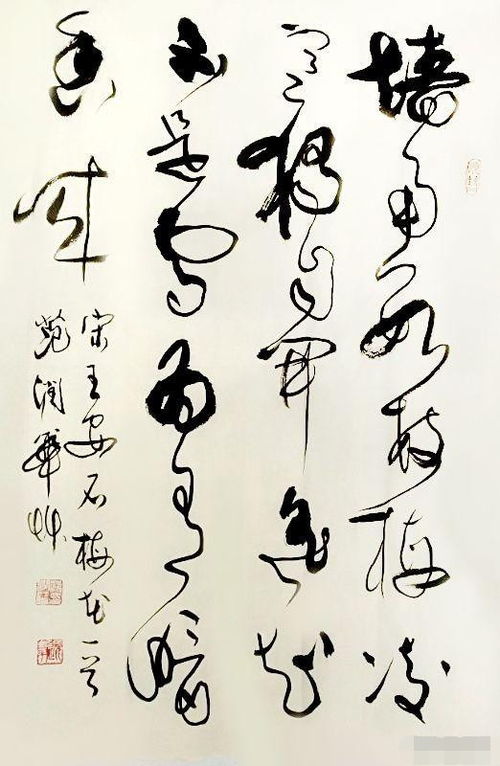 墙角数枝梅凌
寒独自开遥知
不是雪为有暗
香来
宋王安石梅花一首
苑润华艸